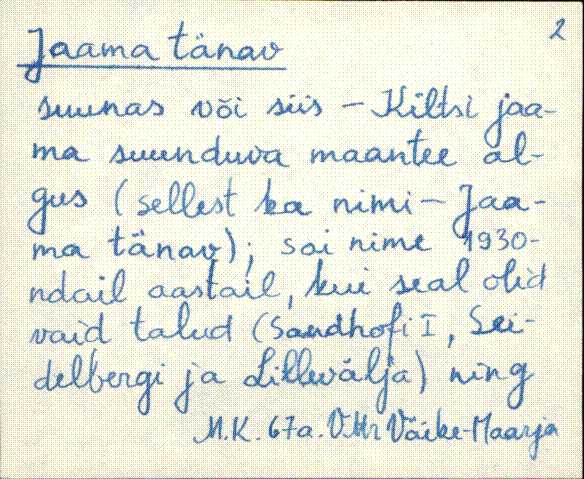 2
Jaama tänav
suunas või siis - Kiltsi jaa-
ma suunduva maantee al-
gus (sellest ka nimi - Jaa-
ma tänav); sai nime 1930-
ndail aastail, kui seal olid
vaid talud (Sandhofi I, Sei-
delbergi ja Lillevälja) ning
M.K. 67a. VMr Väike-Maarja